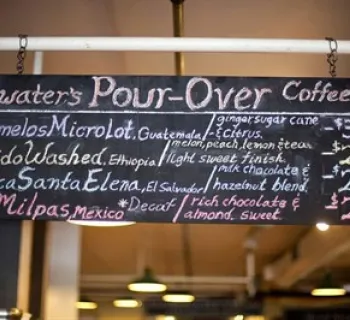 water's Pour-Over Coffee
melos MicroLot, Guatemala / ginger sugar cane & citrus.
do Washed, Ethiopia / melon, peach, lemon & tea light sweet finish
ca Santa Elena, El Salvador / milk chocolate & hazelnut blend,
Milpas, Mexico *Decaf / rich chocolate & almond, sweet.